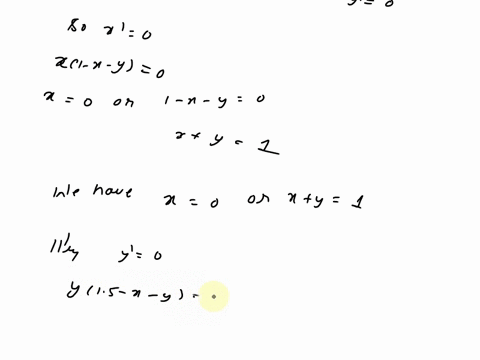 y' = 0
So x' = 0
x(1-x-y) = 0
x = 0 or 1-x-y = 0
x + y = 1
We have x = 0 or x+y = 1
Illly y' = 0
y(1.5-x-y) =